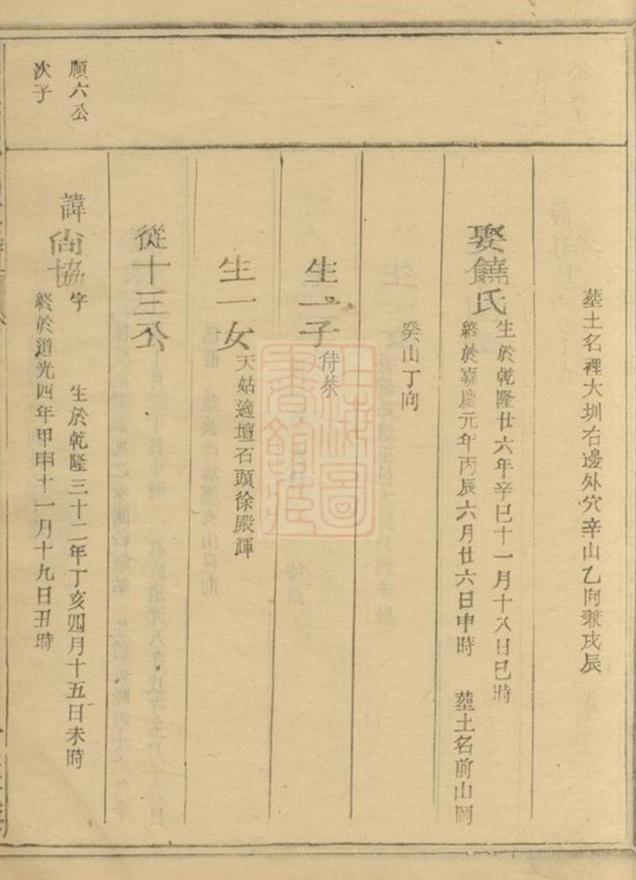 墓土名裡大圳右邊外穴辛山乙向兼戌辰
娶饒氏
生於乾隆廿六年辛巳十一月十八日巳時
終於嘉慶元年丙辰六月廿六日申時　墓土名前山岡
癸山丁向
生一子
侍棻
生一女
天姑適壇石頭徐殿輝
從十三公
順六公
次子
諱尙協字
生於乾隆三十二年丁亥四月十五日未時
終於道光四年甲申十一月十九日丑時
上海圖書館藏